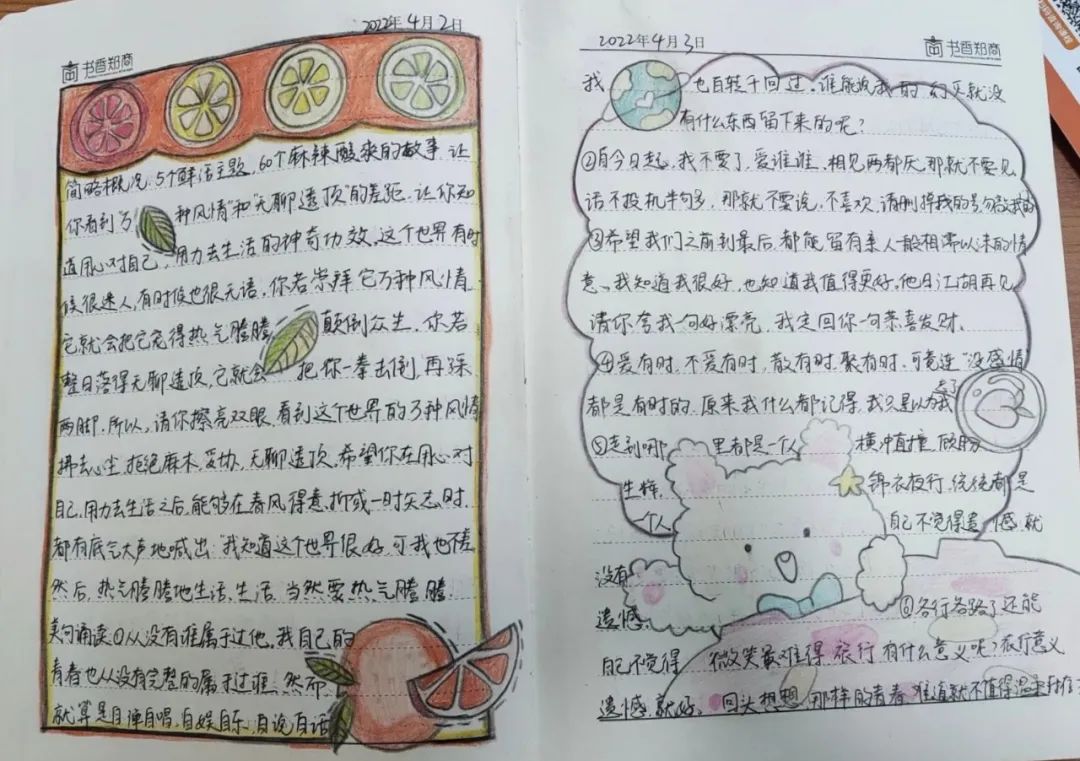 2022年4月2日
书香知商
简略概况,5个鲜活主题,60个麻辣酸爽的故事,让
你看到"万种风情"和"无聊透顶"的差距,让你知
道用心对自己,用力去生活的神奇功效。这个世界有时
候很迷人,有时候也很无语,你若崇拜它万种风情
它就会把它宠得热气腾腾,颠倒众生,你若
整日落得无聊透顶,它就会把你一拳击倒,再踩
两脚,所以,请你擦亮双眼,看到这个世界的万种风情
拂去心尘,拒绝麻木,妥协,无聊透顶,希望你在用心对
自己,用力去生活之后,能够在春风得意,抑或一时失志时,
都有底气大声地喊出:"我知道这个世界很好,可我也不差
然后,热气腾腾地生活,生活,当然要热气腾腾
美句诵读①从没有谁属于过他,我自己的
青春也从没有完整的属于过谁,然而
就算是自弹自唱,自娱自乐,自说自话
2022年4月3日
书香知商
我也自转千回过。谁能说我的 就没
有什么东西留下来的呢?
②自今日起,我不要了,爱谁谁,相见两都厌,那就不要见
话不投机半句多,那就不要说,不喜欢,请删掉我的号
③希望我们之前到最后,都能留有亲人一般相濡以沫的情
意。我知道我很好,也知道我值得更好。他日江湖再见
请你夸我一句好漂亮,我定回你一句恭喜发财。
④爱有时,不爱有时,散有时,聚有时,可竟连"没感情
都是有时的,原来我什么都记得,我只是以为我忘了
⑤走到哪里都是一个人横冲直撞,
生辉,锦衣夜行,统统都是
一个人,自己不觉得遗憾,就
没有
遗憾。⑥各行各路了还能
自己不觉得微笑最难得,旅行有什么意义呢?旅行意义
遗憾,就好。回头想想,那样的青春,难道就不值得